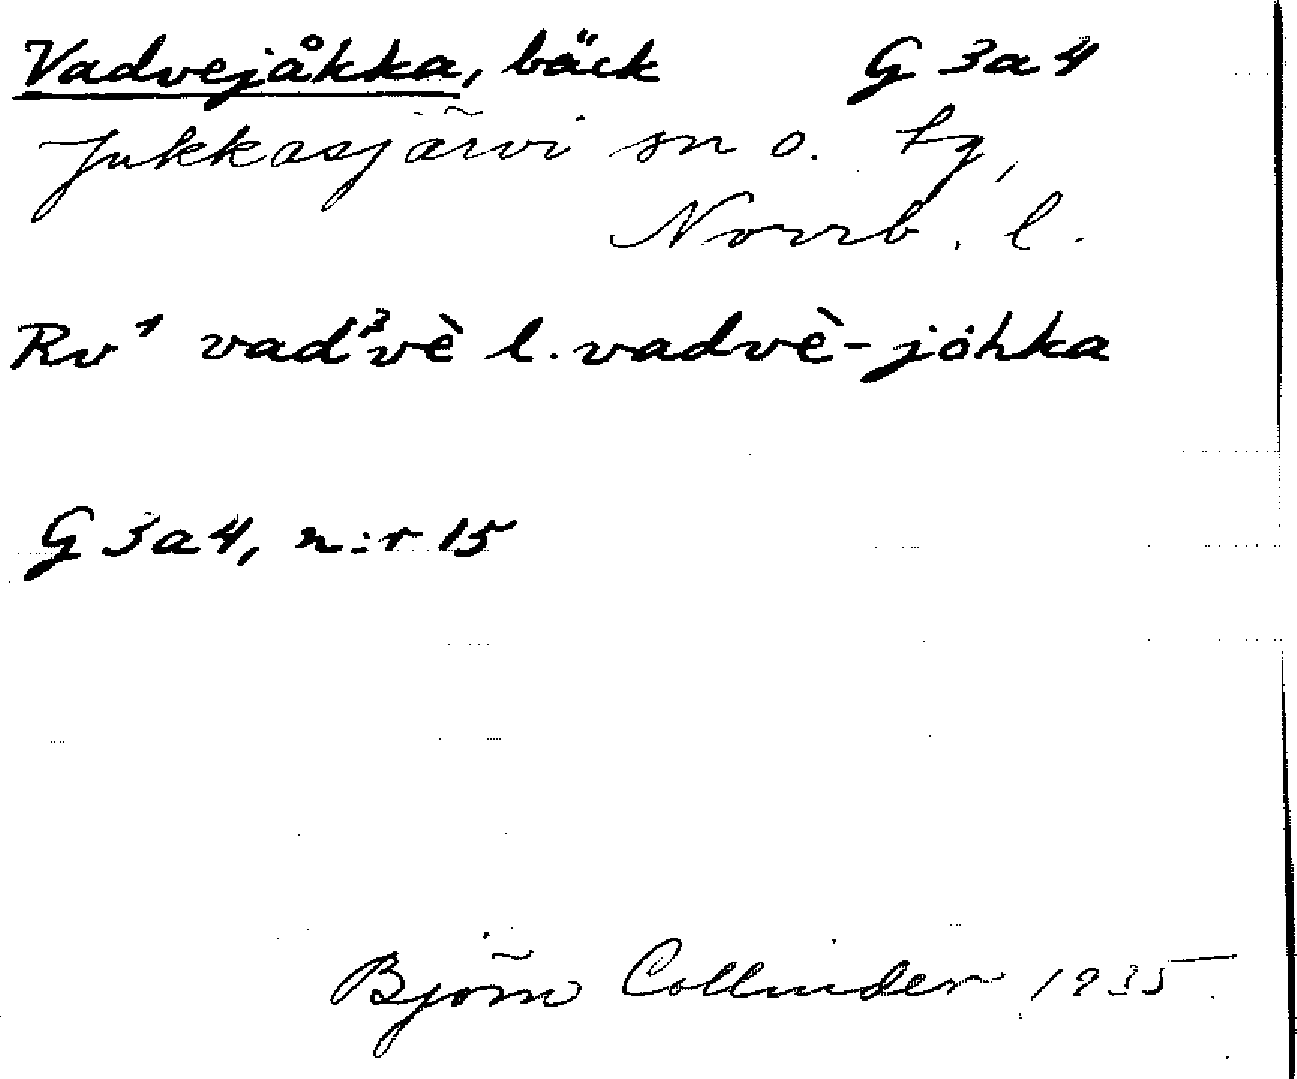 Vadvejåkka, bäck G 3a4
Jukkasjärvi sn o. tg,
Norrb. l.
Rv¹ vad²vè l. vadvè-jóhka
G 3a4, n:r 15
Björn Collinder 1935